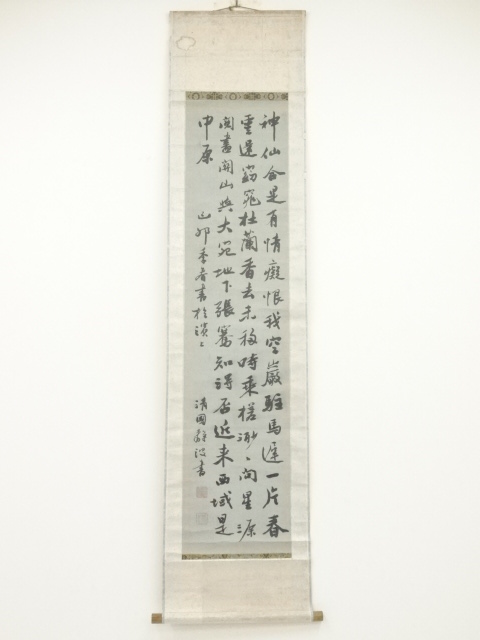 神仙合是有情癡恨我空巖駐馬遲一片春
雲還窈窕杜蘭香去未移時乘槎渺〻問星源
盡關山與大宛地下張騫知得否近來西域是
中原
己卯季春書於
清國 書